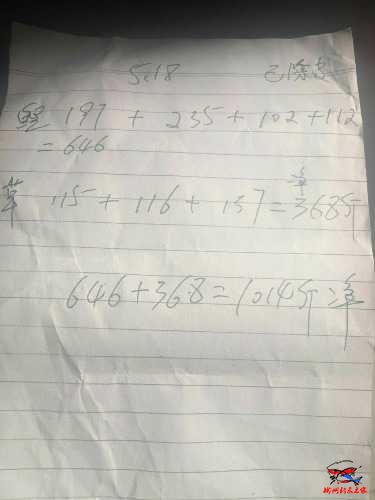 5.18 已除
鲢 197 + 235 + 102 + 112
= 646
净
草 115 + 116 + 137 = 368斤
646 + 368 = 1014斤 净
柳州钓友之家